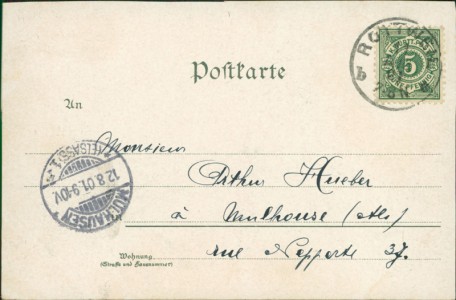 Postkarte
An
Monsieur
Arthur Hueber
à Mulhouse (Als.)
rue 37.
Wohnung
(Straße und Hausnummer)
5
MÜLHAUSEN
12.8.01.9-10V.
(ELSASS) 1